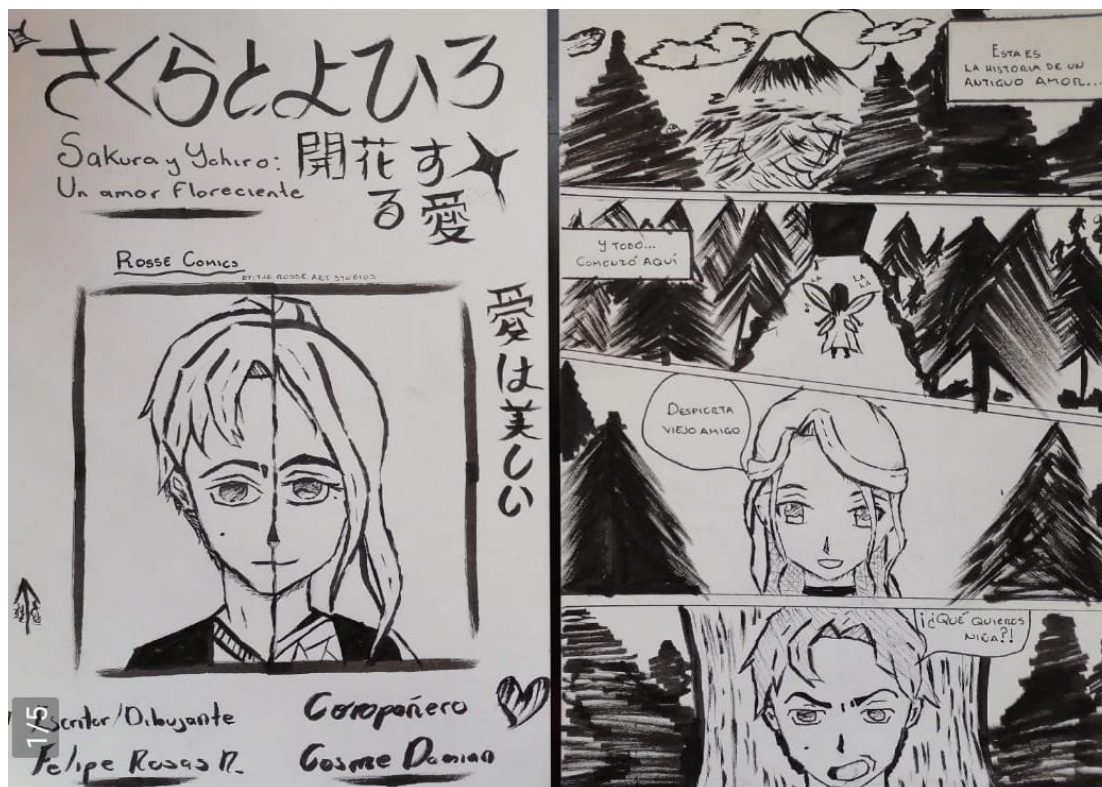 さくらとよひろ
Sakura y Yohiro:
Un amor floreciente
開花す
る愛
Rosse Comics
BY: T.J.R. ROSSE ART STUDIOS
愛は美しい
Escritor/Dibujante
Felipe Rosas R.
Compañero
Cosme Damian
1/5
ESTA ES
LA HISTORIA DE UN
ANTIGUO AMOR...
Y TODO...
COMENZÓ AQUÍ
LA
LA
LA
DESPIERTA
VIEJO AMIGO
¡¿QUÉ QUIERES
NIÑA?!